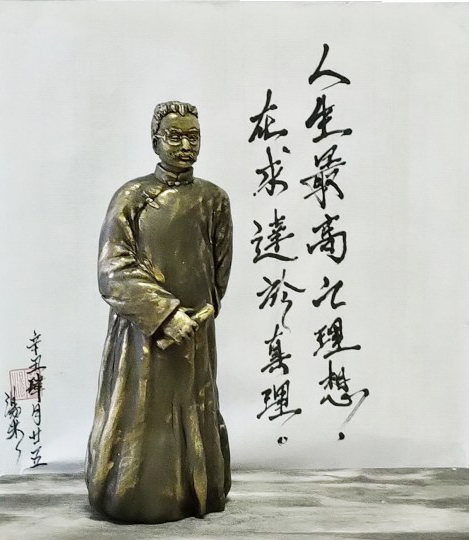 人生最高之理想，
在求達於真理。
辛丑肆月廿五